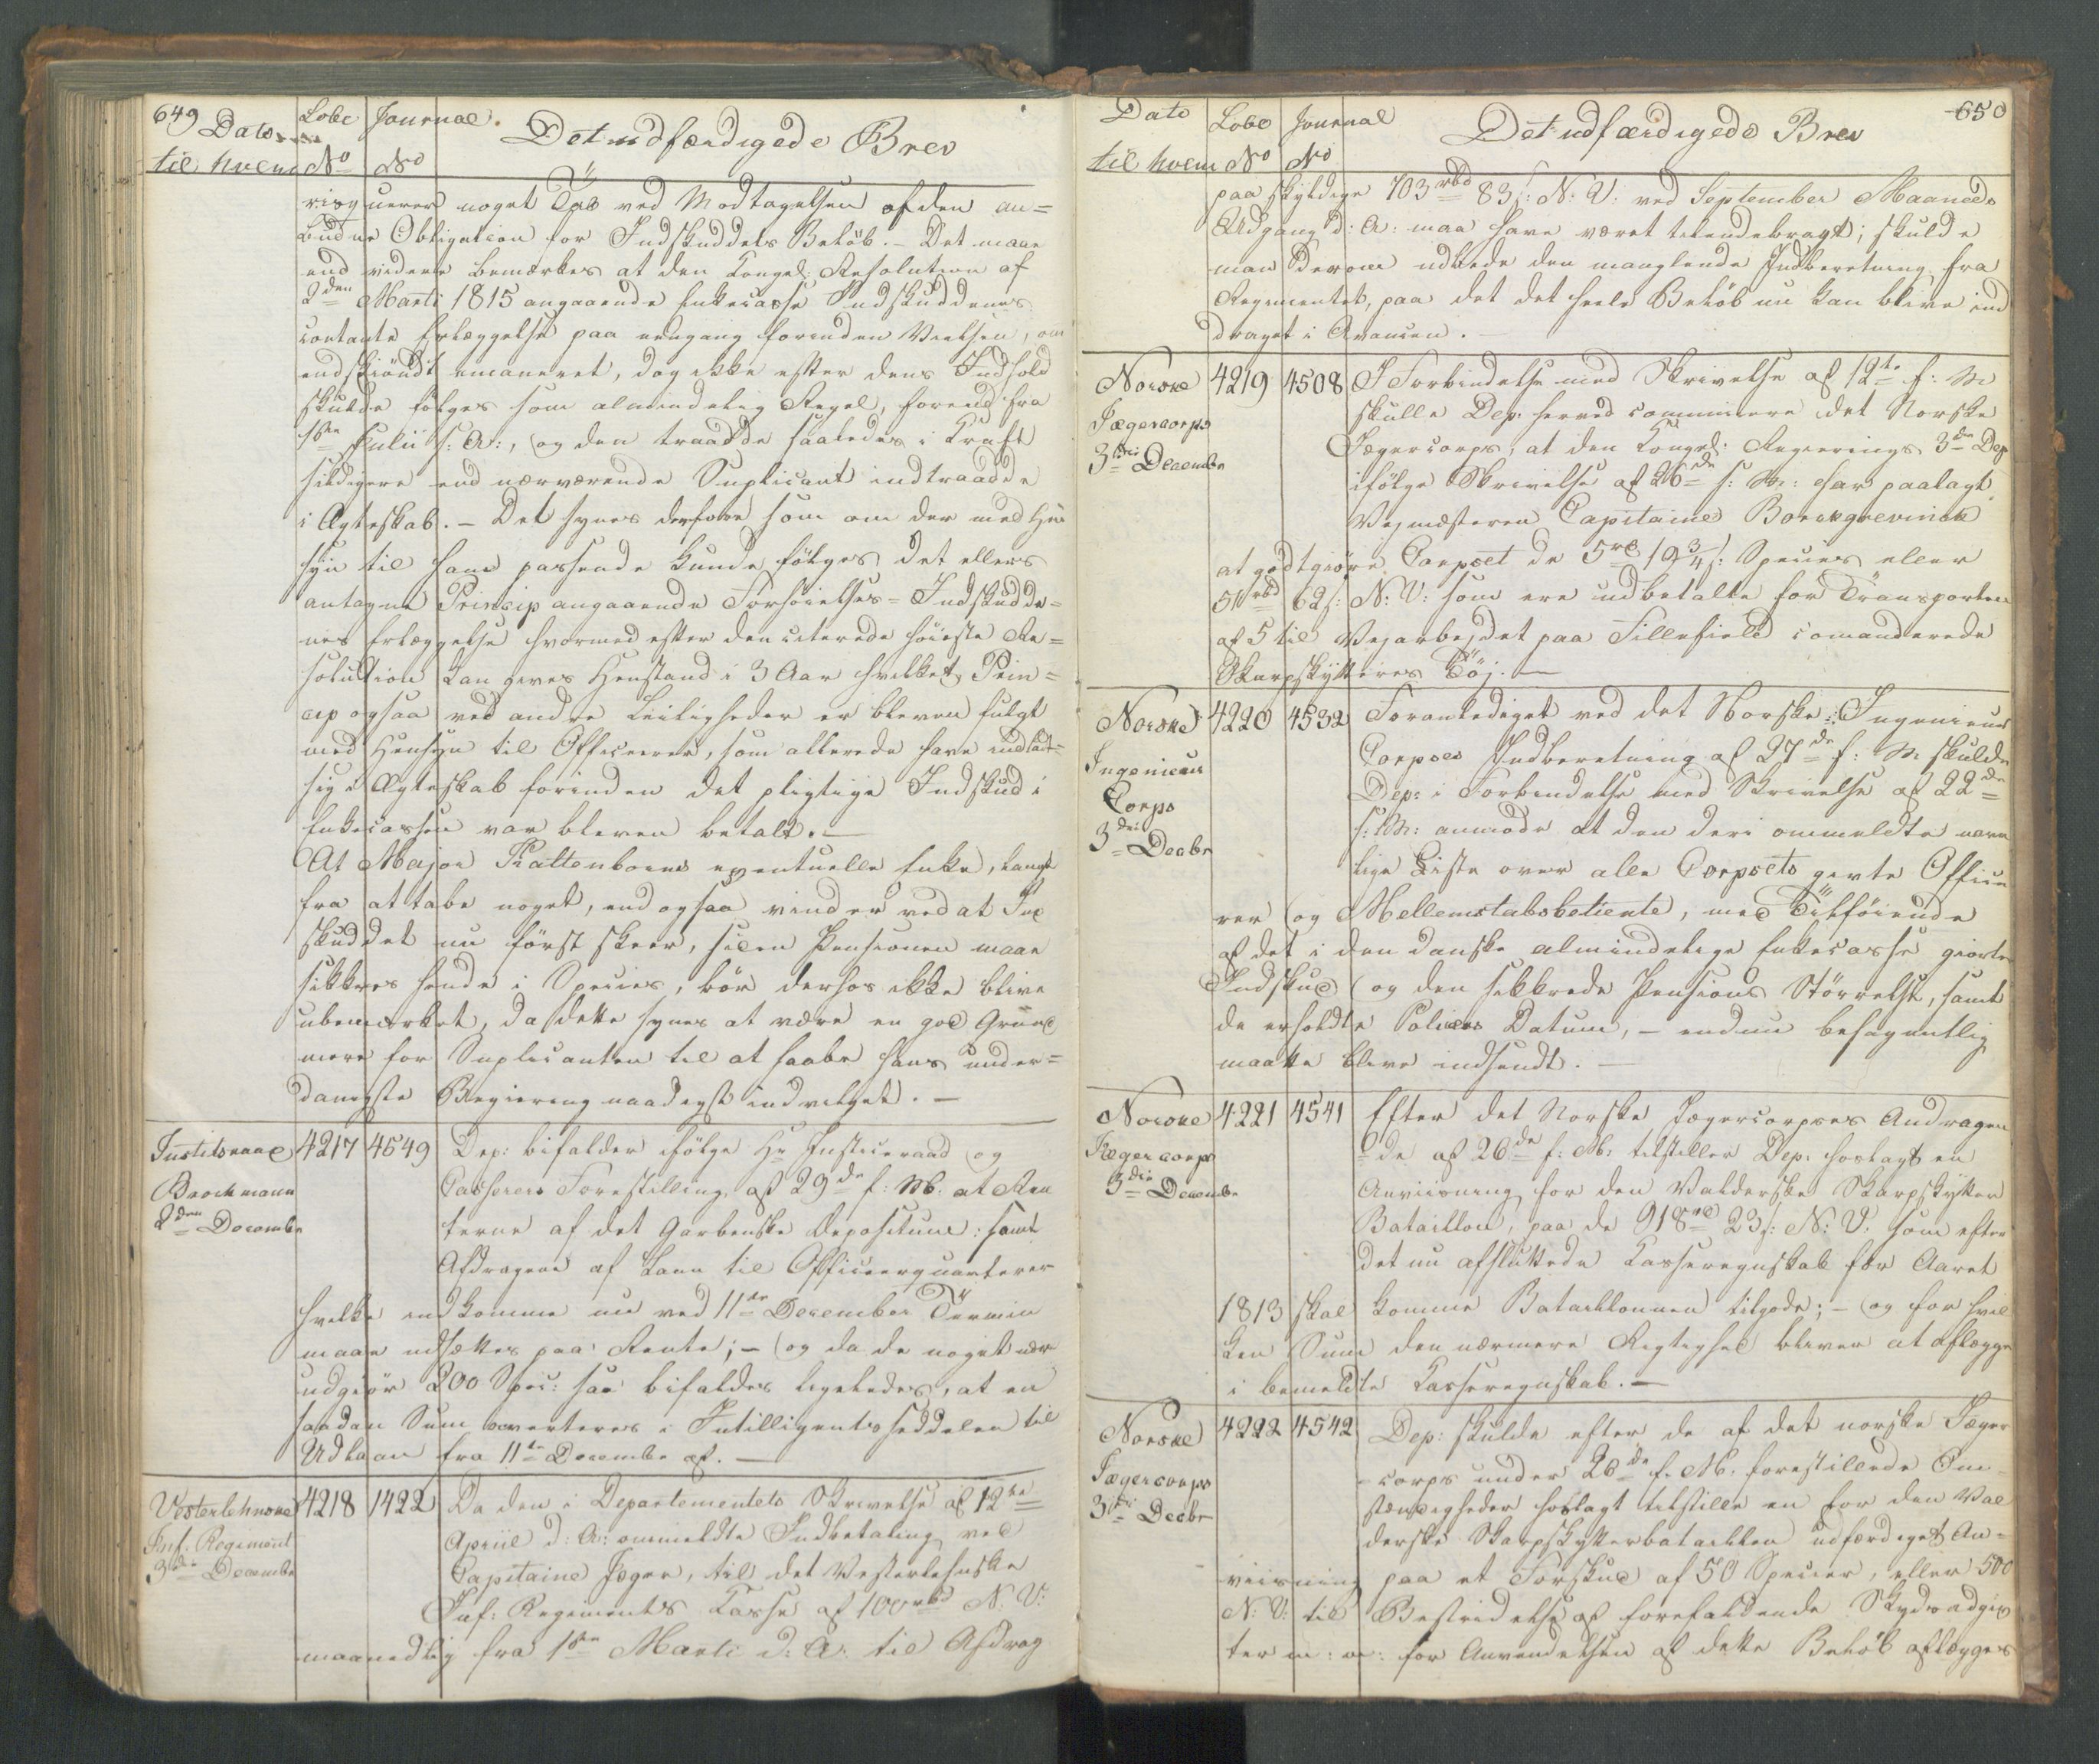 649
Dato
til hvem
Lobe
No
Journal
No
Det udfærdigede Brev
risquerer noget Tab ved Modtagelsen af den an=
budne Obligation for Indskuddets Beløb. - Det maae
end videre bemærkes at den Kongel: Resolution af
2den Marti 1815 angaaende Enkecasse Indskuddenes
contante Erlæggelse paa eengang forinden Vielsen, om
endskiøndt emaneret, dog ikke efter dens Indhold
skulde følges som almindelig Regel, førend fra
1ste Julii s: A:, og den traadde saaledes i Kraft
sildigere end nærværende Suplicant indtraadde
i Ægteskab. - Det synes derfore som om der med Hen
syn til ham passende kunde følges det ellers
antagne Princip angaaende Forhøielses-Indskudde=
nes Erlæggelse hvormed efter den citerede høieste Re=
solution kan gives Henstand i 3 Aar hvilket Prin=
cip ogsaa ved andre Leiligheder er bleven fulgt
med Hensyn til Officierer, som allerede have indladt
sig i Ægteskab forinden det pligtige Indskud i
Enkecassen var bleven betalt. -
At Major Kaltenborns eventuelle Enke, langt
fra at tabe noget, endogsaa vinder ved at Ind
skuddet nu først skeer, siden Pensionen maae
sikkres hende i Species, bør derhos ikke blive
ubemærket, da dette synes at være en god Grund
mere for Suplicanten til at haabe hans under=
danigste Begiering naadigst indvilget. -
Justitsraad
Bachmann
2den Decembr
4217
4549
Dep: bifalder ifølge Hr Justiceraad og
Casserers Forestilling af 29de f: M: at Ren
terne af det Garbenske Depositum: samt
Afdragene af Laan til Officeerquarterer
hvilke indkomme nu ved 11te December Termin
maae udsættes paa Rente; - og da de noget nær
udgiør 200 Spec: saa bifaldes ligeledes, at en
saadan Sum averteres i Intilligentsseddelen til
Udlaan fra 11te Decembr af. -
Vesterlehnske
Inf: Regiment
3die Decembr
4218
1422
Da den i Departementets Skrivelse af 12te
Apriil d: A: ommeldte Indbetaling ved
Capitaine Jæger, til det Vesterlehnske
Inf: Regiments Casse af 100 rbd N: V:
maanedlig fra 1ste Marti d: A: til Afdrag
650
Dato
til hvem
Lobe
No
Journal
No
Det udfærdigede Brev
paa skyldige 703 rbd 83 s: N: V: ved September Maaneds
Udgang d: A: maa have været tilendebragt; skulde
man derom udbede den manglende Indberetning fra
Regimentet, paa det det heele Beløb nu kan blive ind
draget i Avancen. -
Norske
Jægercorps
3die Decembr
4219
4508
I Forbindelse med Skrivelse af 12te f: M:
skulle Dep: herved communicere det Norske
Jægercorps, at den Kongel: Regierings 3die Dep
ifølge Skrivelse af 26de s: M: har paalagt
Vejmæsteren Capitaine Borckgrevinck
at godtgiøre Corpset de 5 rb 19 3/4 s: Species eller
51 rbd 62 s: N: V: som ere udbetalte for Transporten
af 5 til Vejarbejdet paa Fillefield comanderede
Skarpskytteres Tøj. -
Norske
Ingenieur
Corps
3die Decbr
4220
4532
Foranlediget ved det Norske Ingenieur
Corpses Indberetning af 27de f: M: skulde
Dep: i Forbindelse med Skrivelse af 22de
s: M: anmode at den deri ommeldte navn
lige Liste over alle Corpsets givte Officie
rer og Mellemstabsbetiente, med Tilføiende
af det i den danske almindelige Enkecasse giorte
Indskud og den sikkrede Pensions Størrelse, samt
de erholdte Policers Datum, - endnu behagentlig
maatte blive indsendt. -
Norske
Jægercorps
3die Decembr
4221
4541
Efter det Norske Jægercorpses Andragen
de af 26de f: M: tilstiller Dep: hoslagt en
Anviisning for den Valderske Skarpskytter
Bataillon, paa de 918 rbd 23 s: N: V: som efter
det nu afsluttede Casseregnskab for Aaret
1813 skal komme Bataillonnen tilgode; - og for hvil
ken Sum den nærmere Rigtighed bliver at aflægge
i bemeldte Casseregnskab. -
Norske
Jægercorps
3die Decbr
4222
4542
Dep: skulde efter de af det norske Jæger
corps under 26de f: M: forestillede Om
stændigheder hoslagt tilstille en for den Val
derske Skarpskytterbataillon udfærdiget An=
viisning paa et Forskud af 50 Specier, eller 500
N: V: til Bestridelse af forefaldende Skydsudgif
ter m: v: for Anvendelsen af dette Beløb aflægges